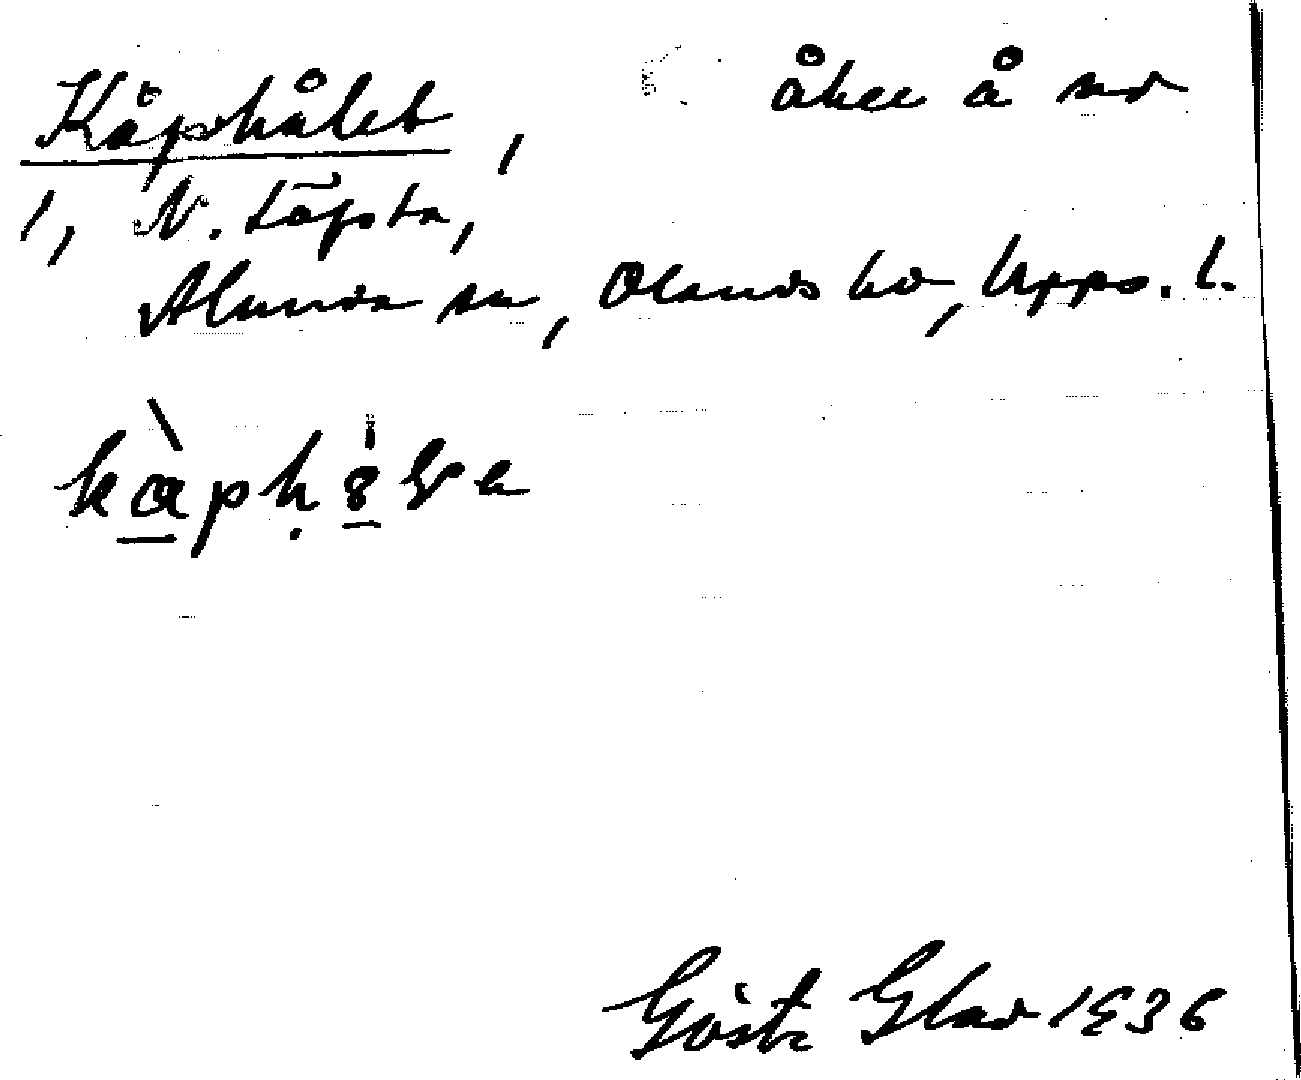 Kåphålet, åker å nr
1, N. Löfsta,
Alunda sn, Olands hd, Upps. l.
Gösta Glad 1936